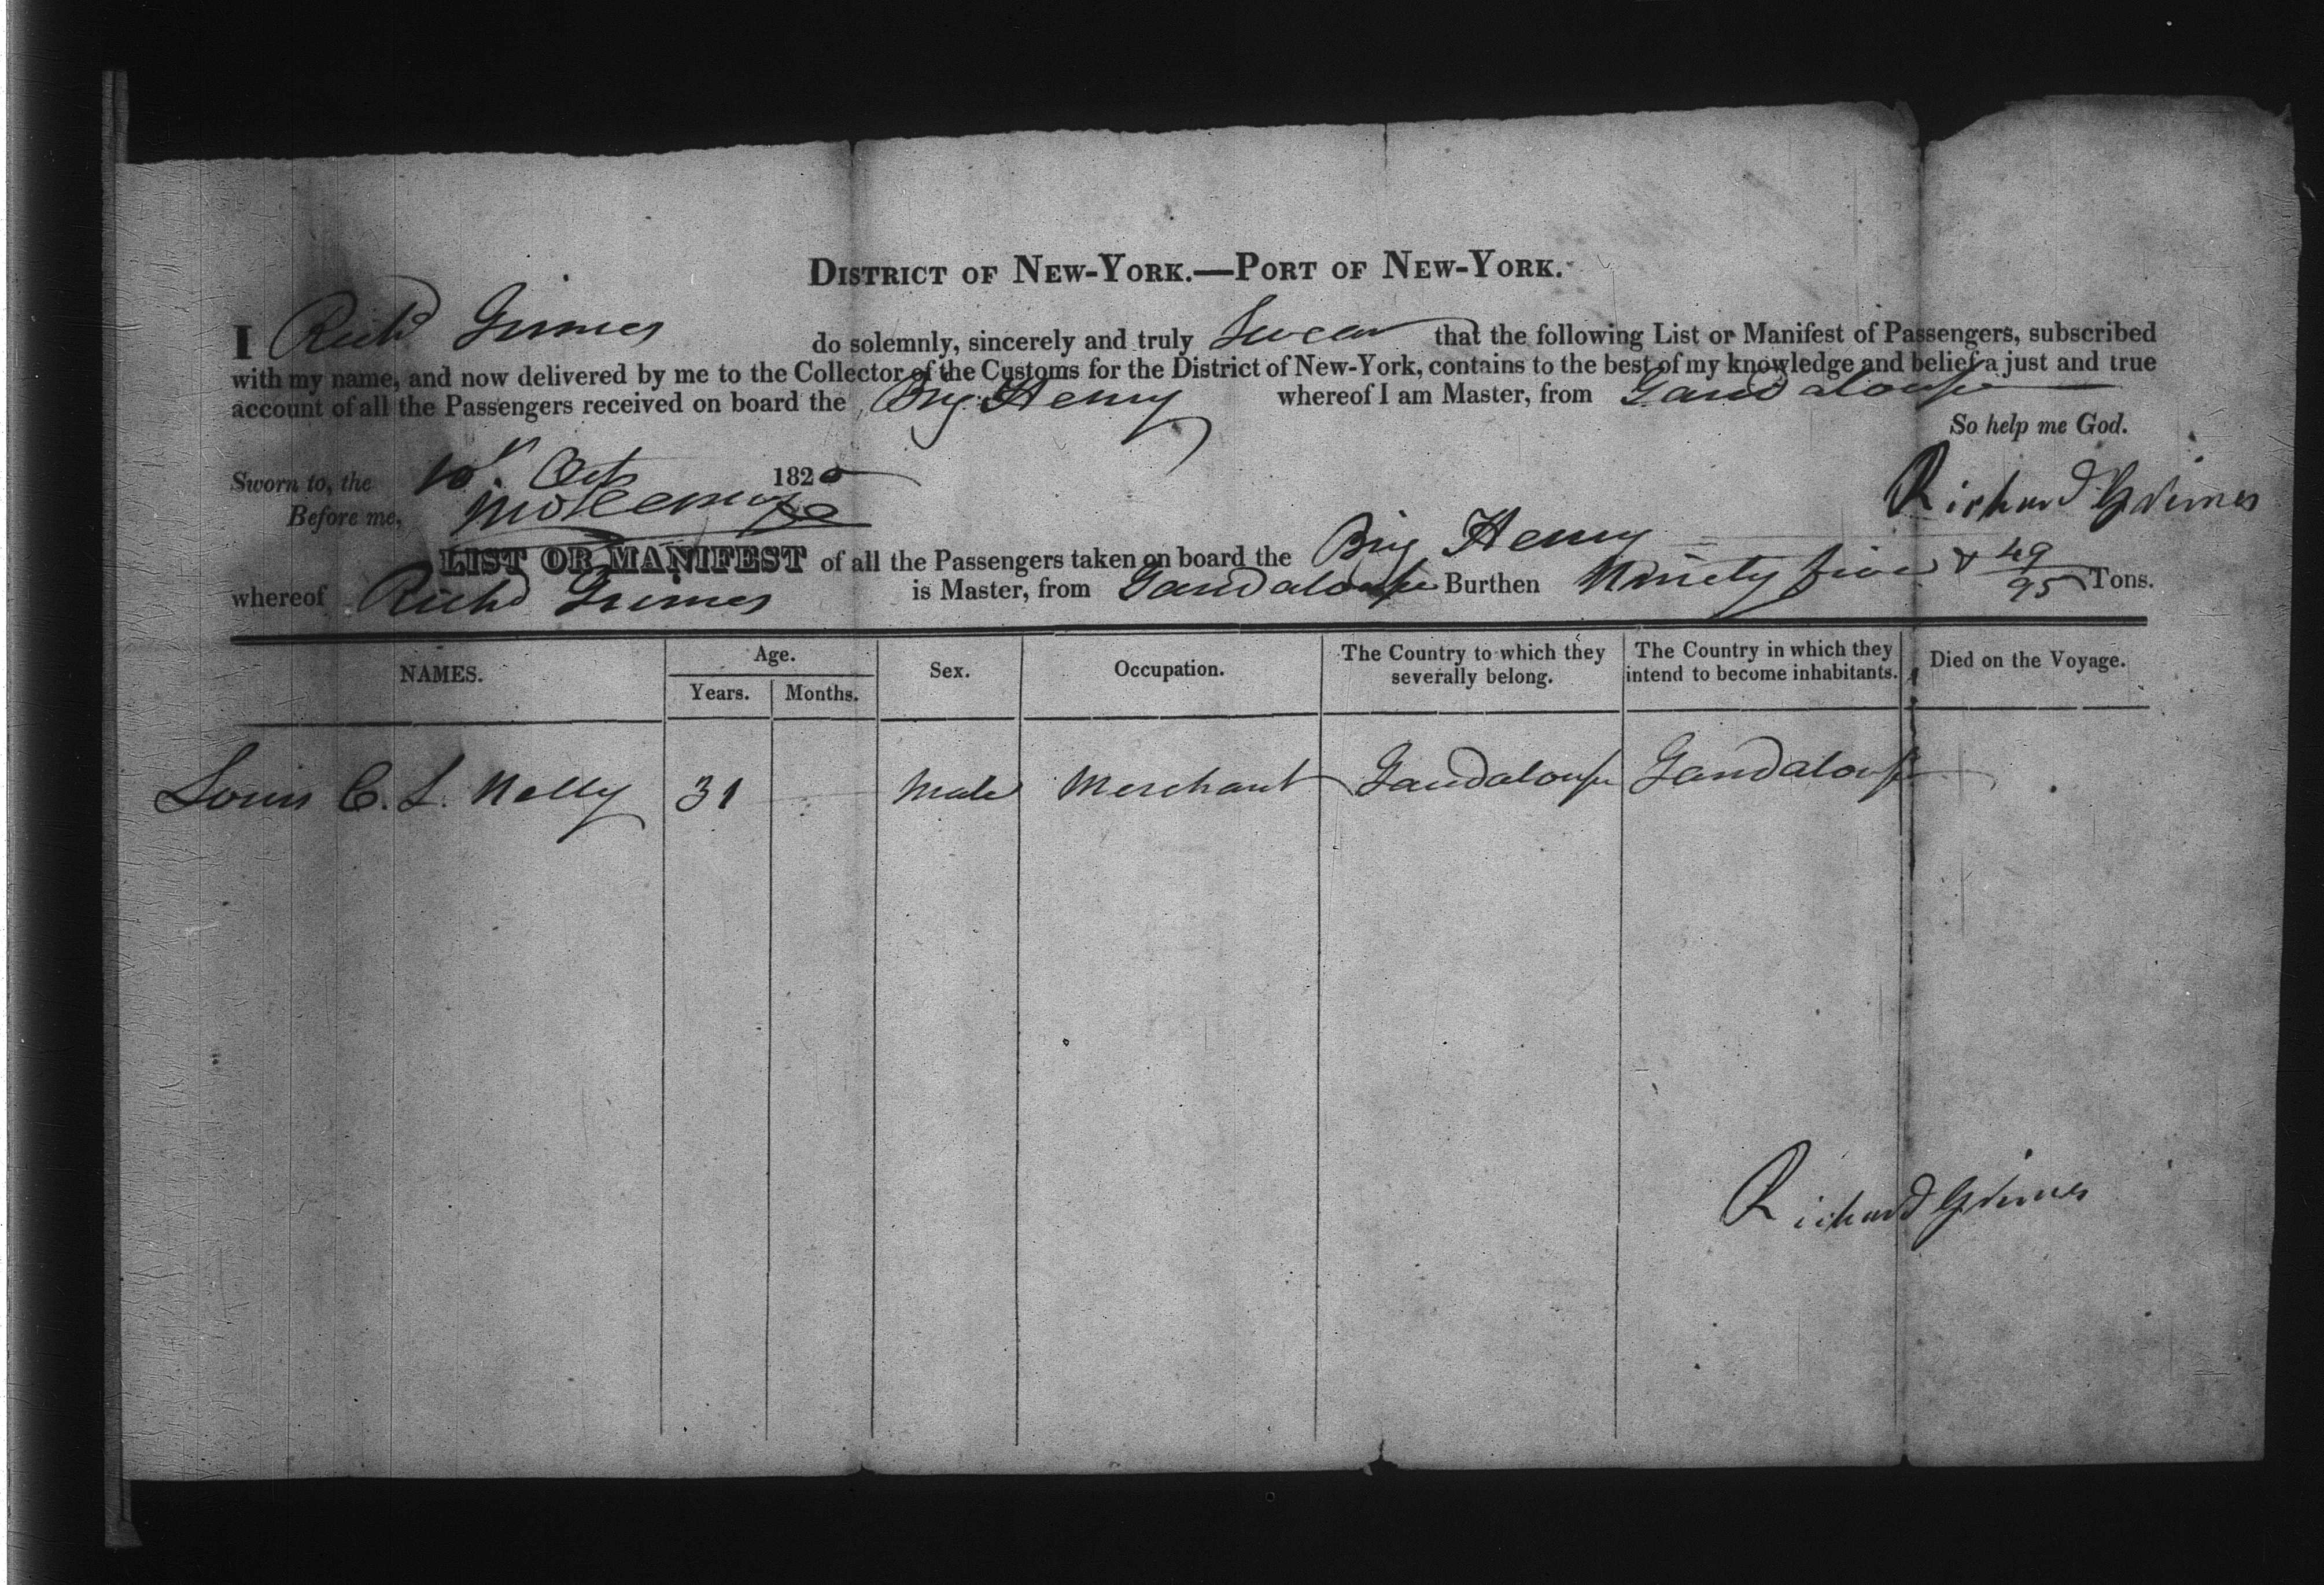 DISTRICT OF NEW-YORK.—PORT OF NEW-YORK.
I Richd Grimes do solemnly, sincerely and truly Swear that the following List or Manifest of Passengers, subscribed
with my name, and now delivered by me to the Collector of the Customs for the District of New-York, contains to the best of my knowledge and belief a just and true
account of all the Passengers received on board the Brig Henry whereof I am Master, from Gaudaloupe
So help me God.
Sworn to, the 10th Oct 1820
Before me,
Richard Grimes
LIST OR MANIFEST of all the Passengers taken on board the Brig Henry
whereof Richd Grimes is Master, from Gaudaloupe Burthen Ninety five & 49/95 Tons.
NAMES. Age. Years. Months. Sex. Occupation. The Country to which they severally belong. The Country in which they intend to become inhabitants. Died on the Voyage.
Louis C. L. Nelly 31 Male Merchant Gaudaloupe Gaudaloupe
Richard Grimes